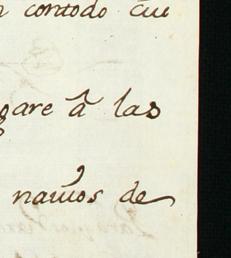 contodo cui
gare â las
navios de